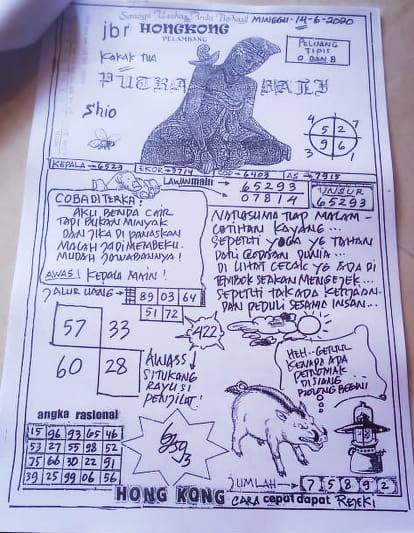 Semoga Usaha Anda Berhasil MINGGU-14-6-2020
jbr HONGKONG
PELAMBANG
KAKAK TUA
PELUANG
TIPIS
0 DAN 8
PUTRA BALI
Shio
4 5 2 7
3 9 6 1
KEPALA → 6523 EKOR → 3714 COP → 6403 AS → 7915
LAWAN main
65293
07814
UNSUR
65293
COBA DI TERKA!
AKU BENDA CAIR
TAPI BUKAN MINYAK
DAN JIKA DI PANASKAN
MALAH JADI MEMBEKU.
MUDAH JAWABANNYA!
AWAS! KEPALA MAIN!
NATLASUMA TIAP MALAM -
LATIHAN KAYANG...
SEPERTI YOGA YG TAHAN
DARI GODAAN DUNIA...
DI LIHAT CECAK YG ADA DI
TEMBOK SEAKAN MENGEJEK...
SEPERTI TAK ADA KERJAAN
DAN PEDULI SESAMA INSAN...
JALUR UANG →
89 03 64
51 72
57 33
60 28
422
AWASS
SI TUKANG
RAYU SI
PENJILAT!
HEH.. GERRR
KENAPA ADA
PETROMAK
DI SIANG
BOLONG BEGINI
angka rasional
15 96 93 65 46
53 27 55 98 52
75 66 30 22 91
39 25 99 06 56
6393
JUMLAH → 7 5 8 9 2
HONG KONG CARA cepat dapat REJEKI